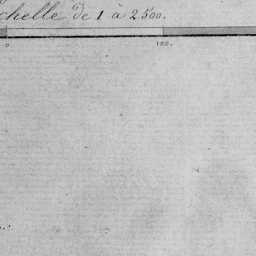 chelle de 1 à 2500.
0 100.